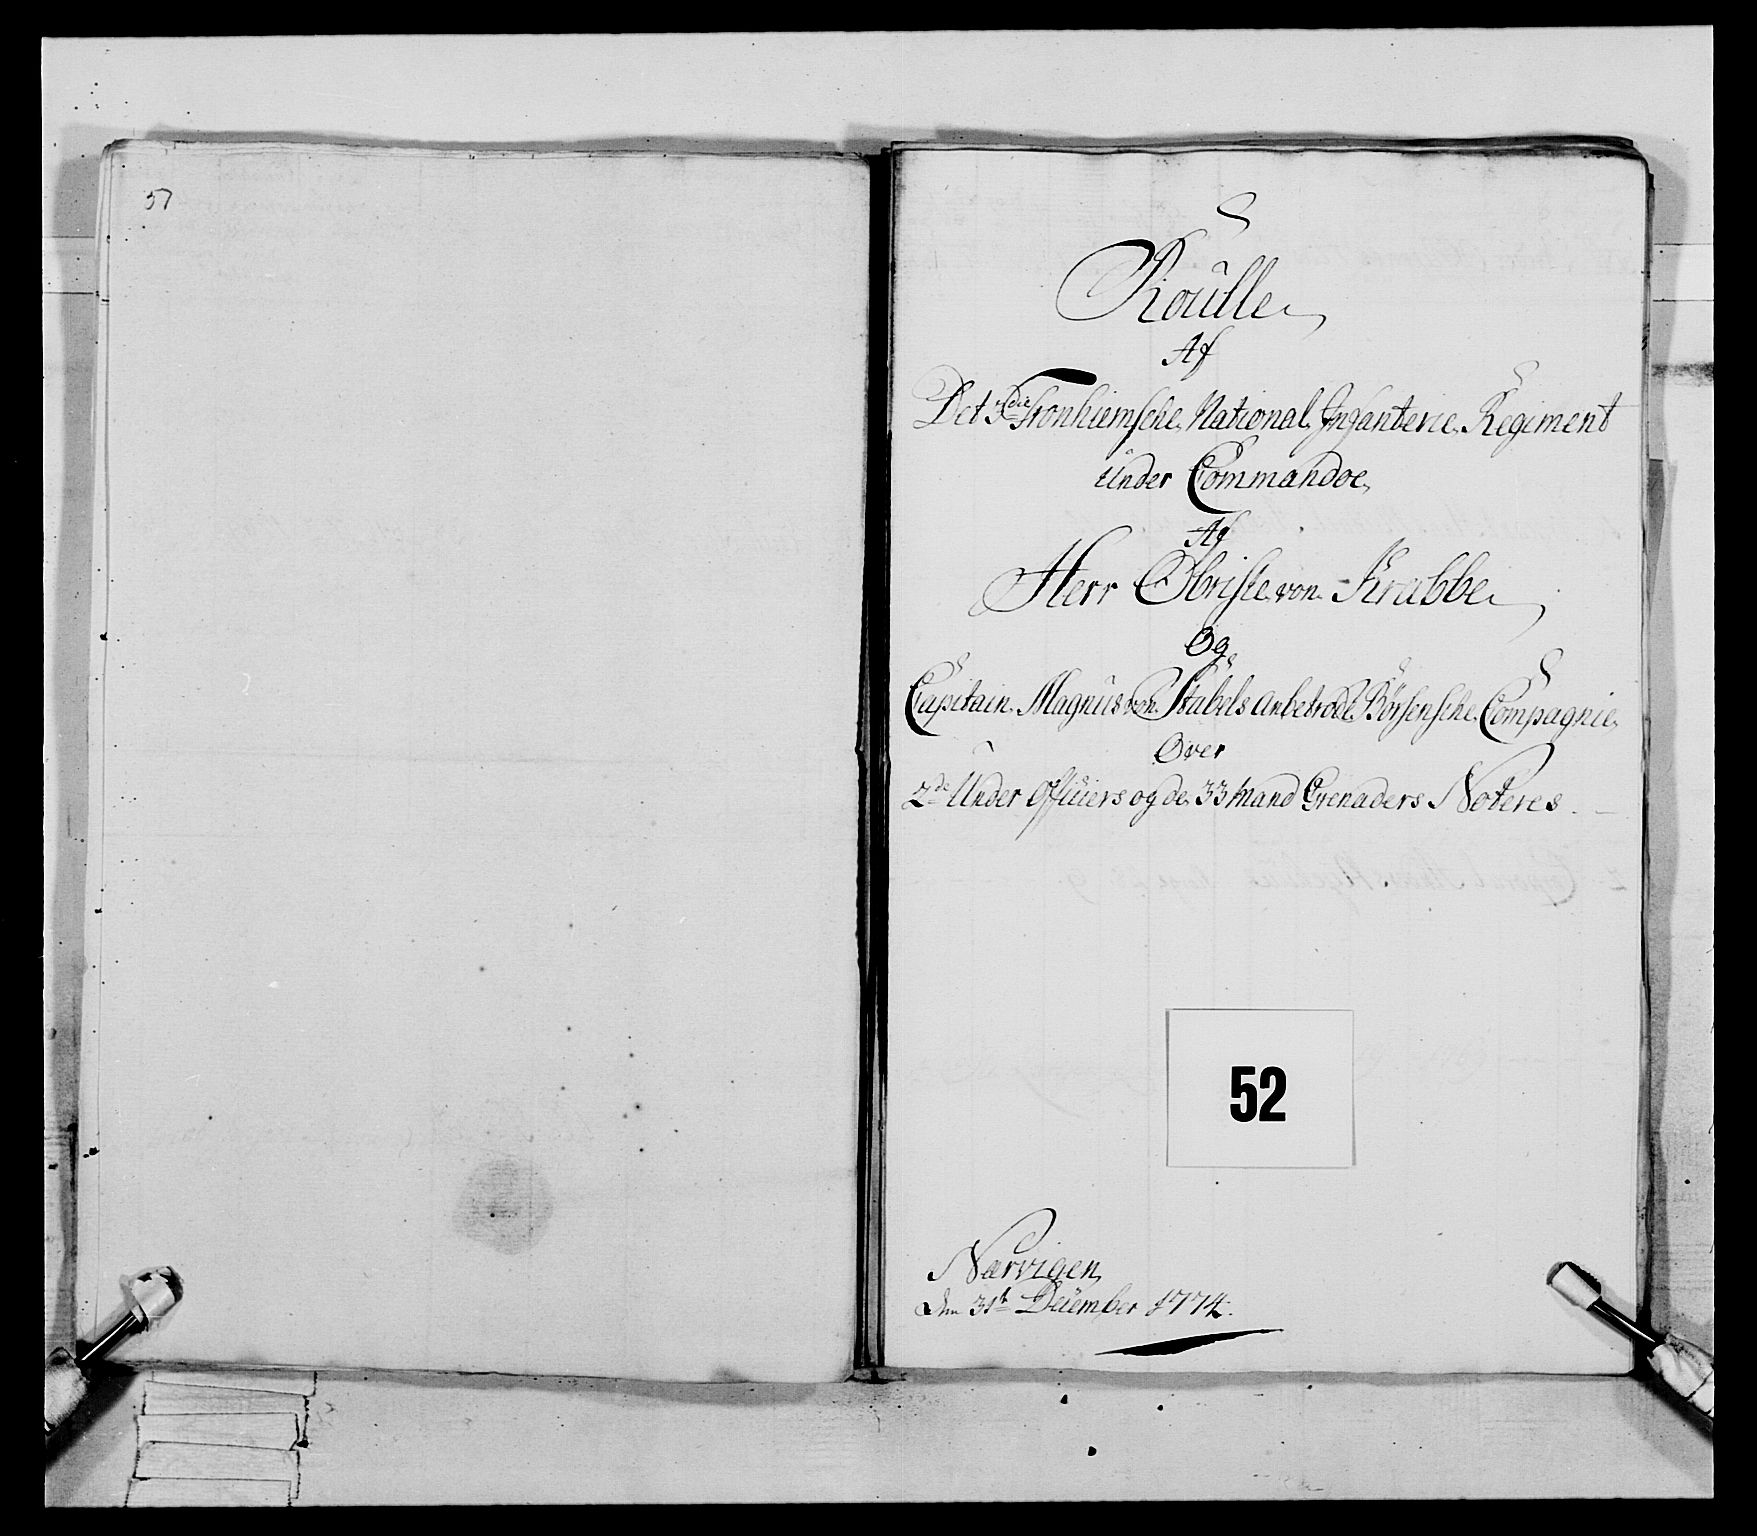 57
Roulle
Af
Det 3die Tronhiemsche National Infanterie Regiment
Under Commandoe
Af
Herr Obriste von Krabbe
Og
Capitain Magnus von Stabels anbetrode Børsensche Compagnie
Over
2de Under Officiers og de 33 Mand Grenaders Noteres
52
Nærvigen
den 31te December 1774